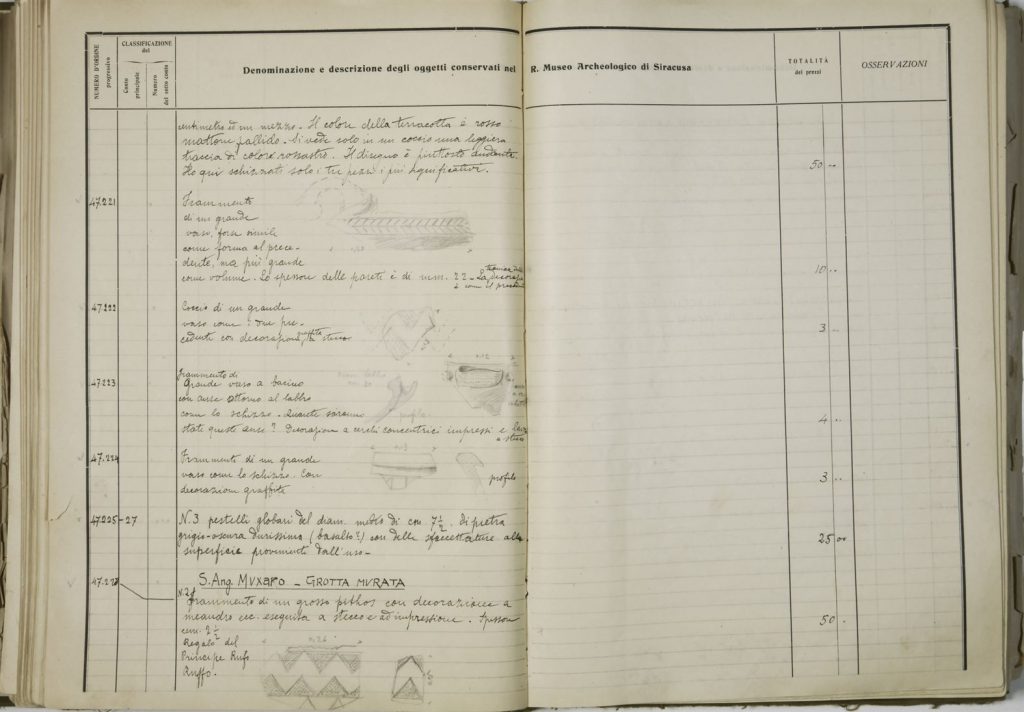 NUMERO D'ORDINE progressivo
CLASSIFICAZIONE del
Conto principale
Numero del sotto conto
Denominazione e descrizione degli oggetti conservati nel R. Museo Archeologico di Siracusa
TOTALITÀ dei prezzi
OSSERVAZIONI
centimetro ed un mezzo. Il colore della terracotta è rosso
mattone pallido. Si vede solo in un coccio una leggiera
traccia di colore rossastro. Il disegno è piuttosto andante.
Ho qui schizzati solo i tre pezzi i più significativi. 50
47.221 Frammento
di un grande
vaso, forse simile
come forma al prece-
dente, ma più grande
come volume. Lo spessore delle pareti è di mm. 22 - La decoraz. 10
è come il preced
47.222 Coccio di un grande
vaso come i due pre- 3
cedenti con decorazione graffita a stecco
47.223 Frammento di
grande vaso a bacino
con anse attorno al labbro
come lo schizzo. Quante saranno 4
state queste anse? Decorazioni a cerchi concentrici impressi e
a stecco
47.224 Frammenti di un grande
vaso come lo schizzo. Con 3
profilo
decorazioni graffite
47.225-27 N. 3 pestelli globari del diam. medio di cm 7 1/2 di pietra
grigio-oscura durissima (basalto?) con delle sfaccettature alla 25 00
superficie provenienti dall'uso-
S. Ang. Muxaro - GROTTA MURATA
N. 2
Frammento di un grosso pithos con decorazione a
meandro ecc. eseguita a stecco e ad impressione. Spessore 50
cm. 2 1/2
Regalo del
Principe Rufo
Ruffo.